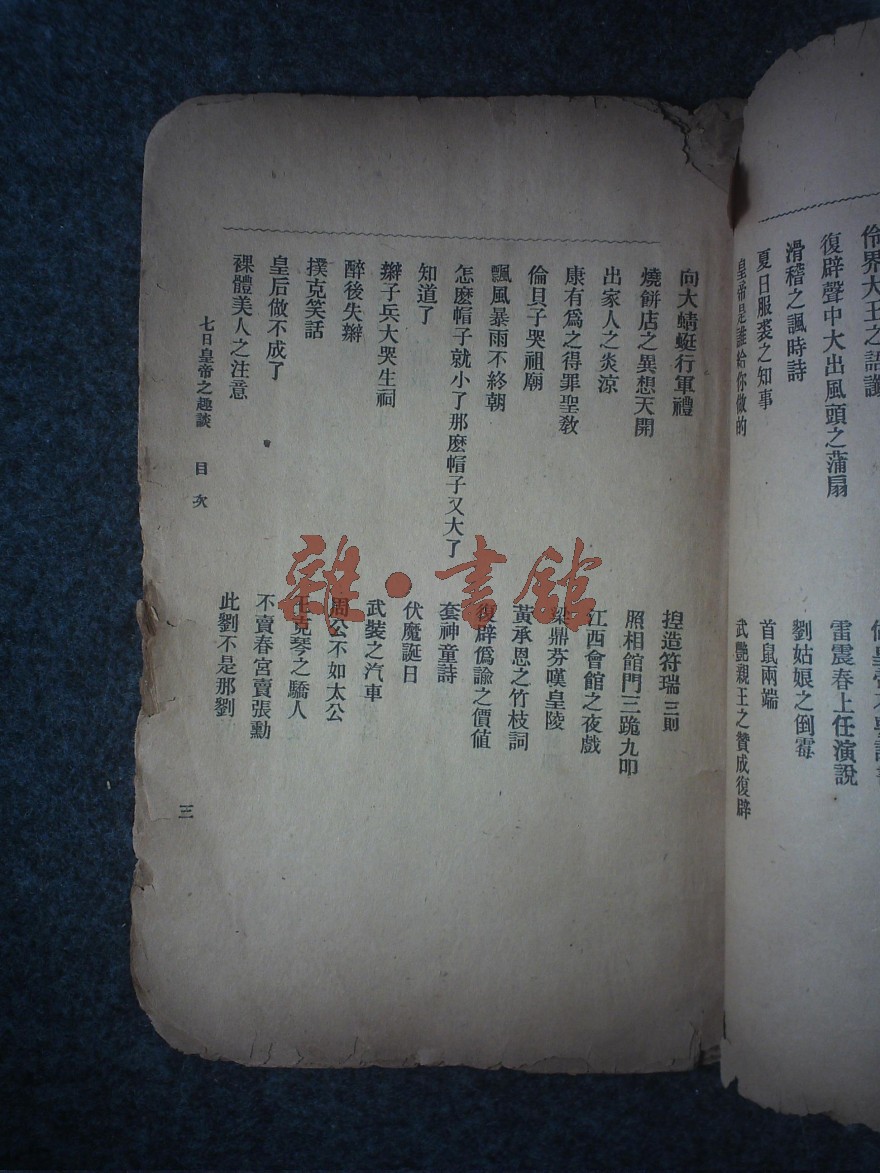 復辟聲中大出風頭之蒲扇
滑稽之諷時詩
夏日服裘之知事
皇帝是誰給你做的
雷震春上任演說
劉姑娘之倒霉
首鼠兩端
武艷親王之贊成復辟
向大蜻蜓行軍禮
燒餅店之異想天開
出家人之炎涼
康有爲之得罪聖教
倫貝子哭祖廟
飄風暴雨不終朝
怎麽帽子就小了那麽帽子又大了
知道了
辮子兵大哭生祠
醉後失辮
撲克笑話
皇后做不成了
裸體美人之注意
揑造符瑞三則
照相館門三跪九叩
江西會館之夜戲
梁鼎芬嘆皇陵
黃承恩之竹枝詞
復辟僞諭之價值
套神童詩
伏魔誕日
武裝之汽車
周公不如太公
王克琴之驕人
不賣春宮賣張勳
此劉不是那劉
七日皇帝之趣談 目次
三
雜·書館